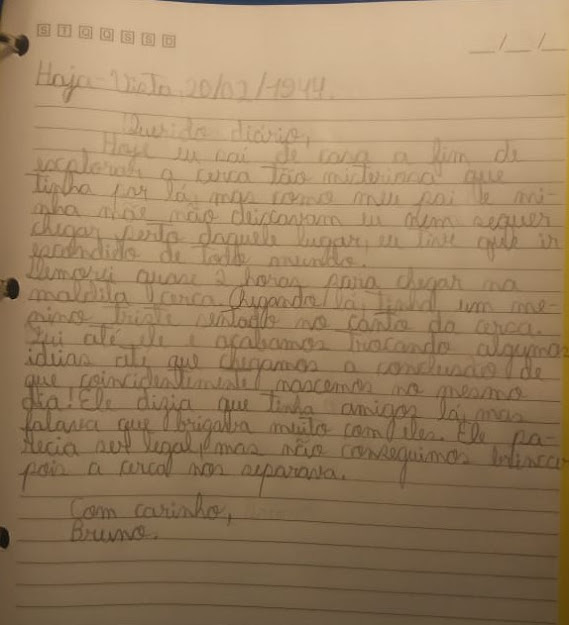 S T Q Q S S D
__/__/__
Haja-Vista, 20/02/1944.
Querido diário,
Hoje eu saí de casa a fim de
explorar a cerca tão misteriosa que
tinha por lá, mas como meu pai e mi-
nha mãe não deixavam eu nem sequer
chegar perto daquele lugar, eu tive que ir
escondido de todo mundo.
Demorei quase 2 horas para chegar na
maldita cerca. Chegando lá, tinha um me-
nino triste sentado no canto da cerca.
Fui até ele e acabamos trocando algumas
idéias até que chegamos a conclusão de
que coincidentimente nascemos no mesmo
dia! Ele dizia que tinha amigos lá, mas
falava que brigava muito com eles. Ele pa-
recia ser legal, mas não conseguimos brincar
pois a cerca nos separava.
Com carinho,
Bruno.